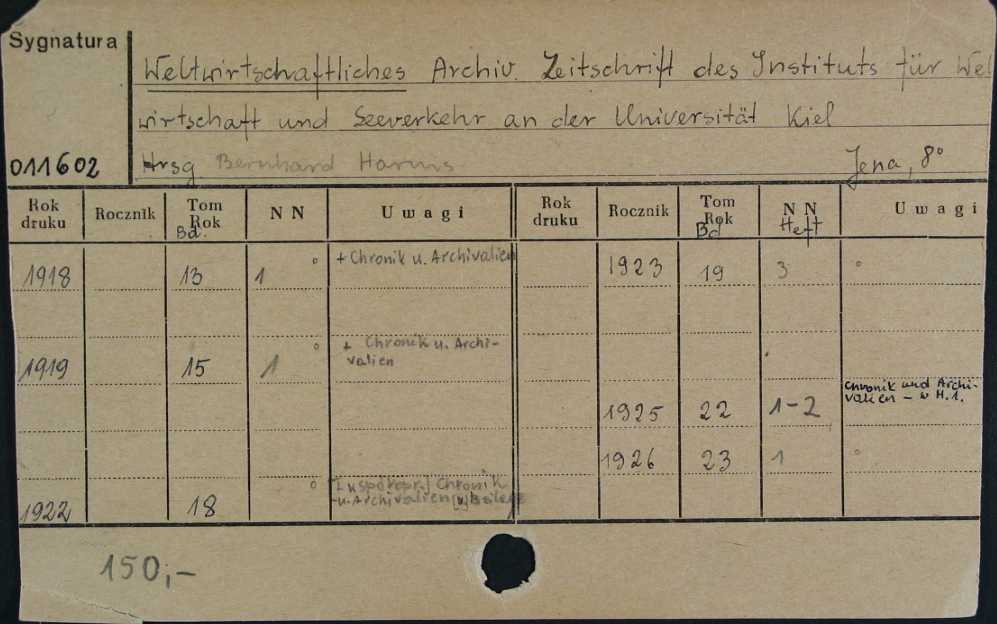 Sygnatura
Weltwirtschaftliches Archiv. Zeitschrift des Instituts für Wel
wirtschaft und Seeverkehr an der Universität Kiel
011602 Hrsg. Bernhard Harms Jena, 8°
Rok druku Rocznik Tom Rok Bd. N N Uwagi Rok druku Rocznik Tom Rok Bd N N Heft Uwagi
1918 13 1 ° + Chronik u. Archivalien 1923 19 3 °
1919 15 1 ° + Chronik u. Archi-
valien
1925 22 1-2 Chronik und Archi-
valien - w H.1.
1926 23 1 °
1922 18 ° Chronik
u. Archivalien
150,-